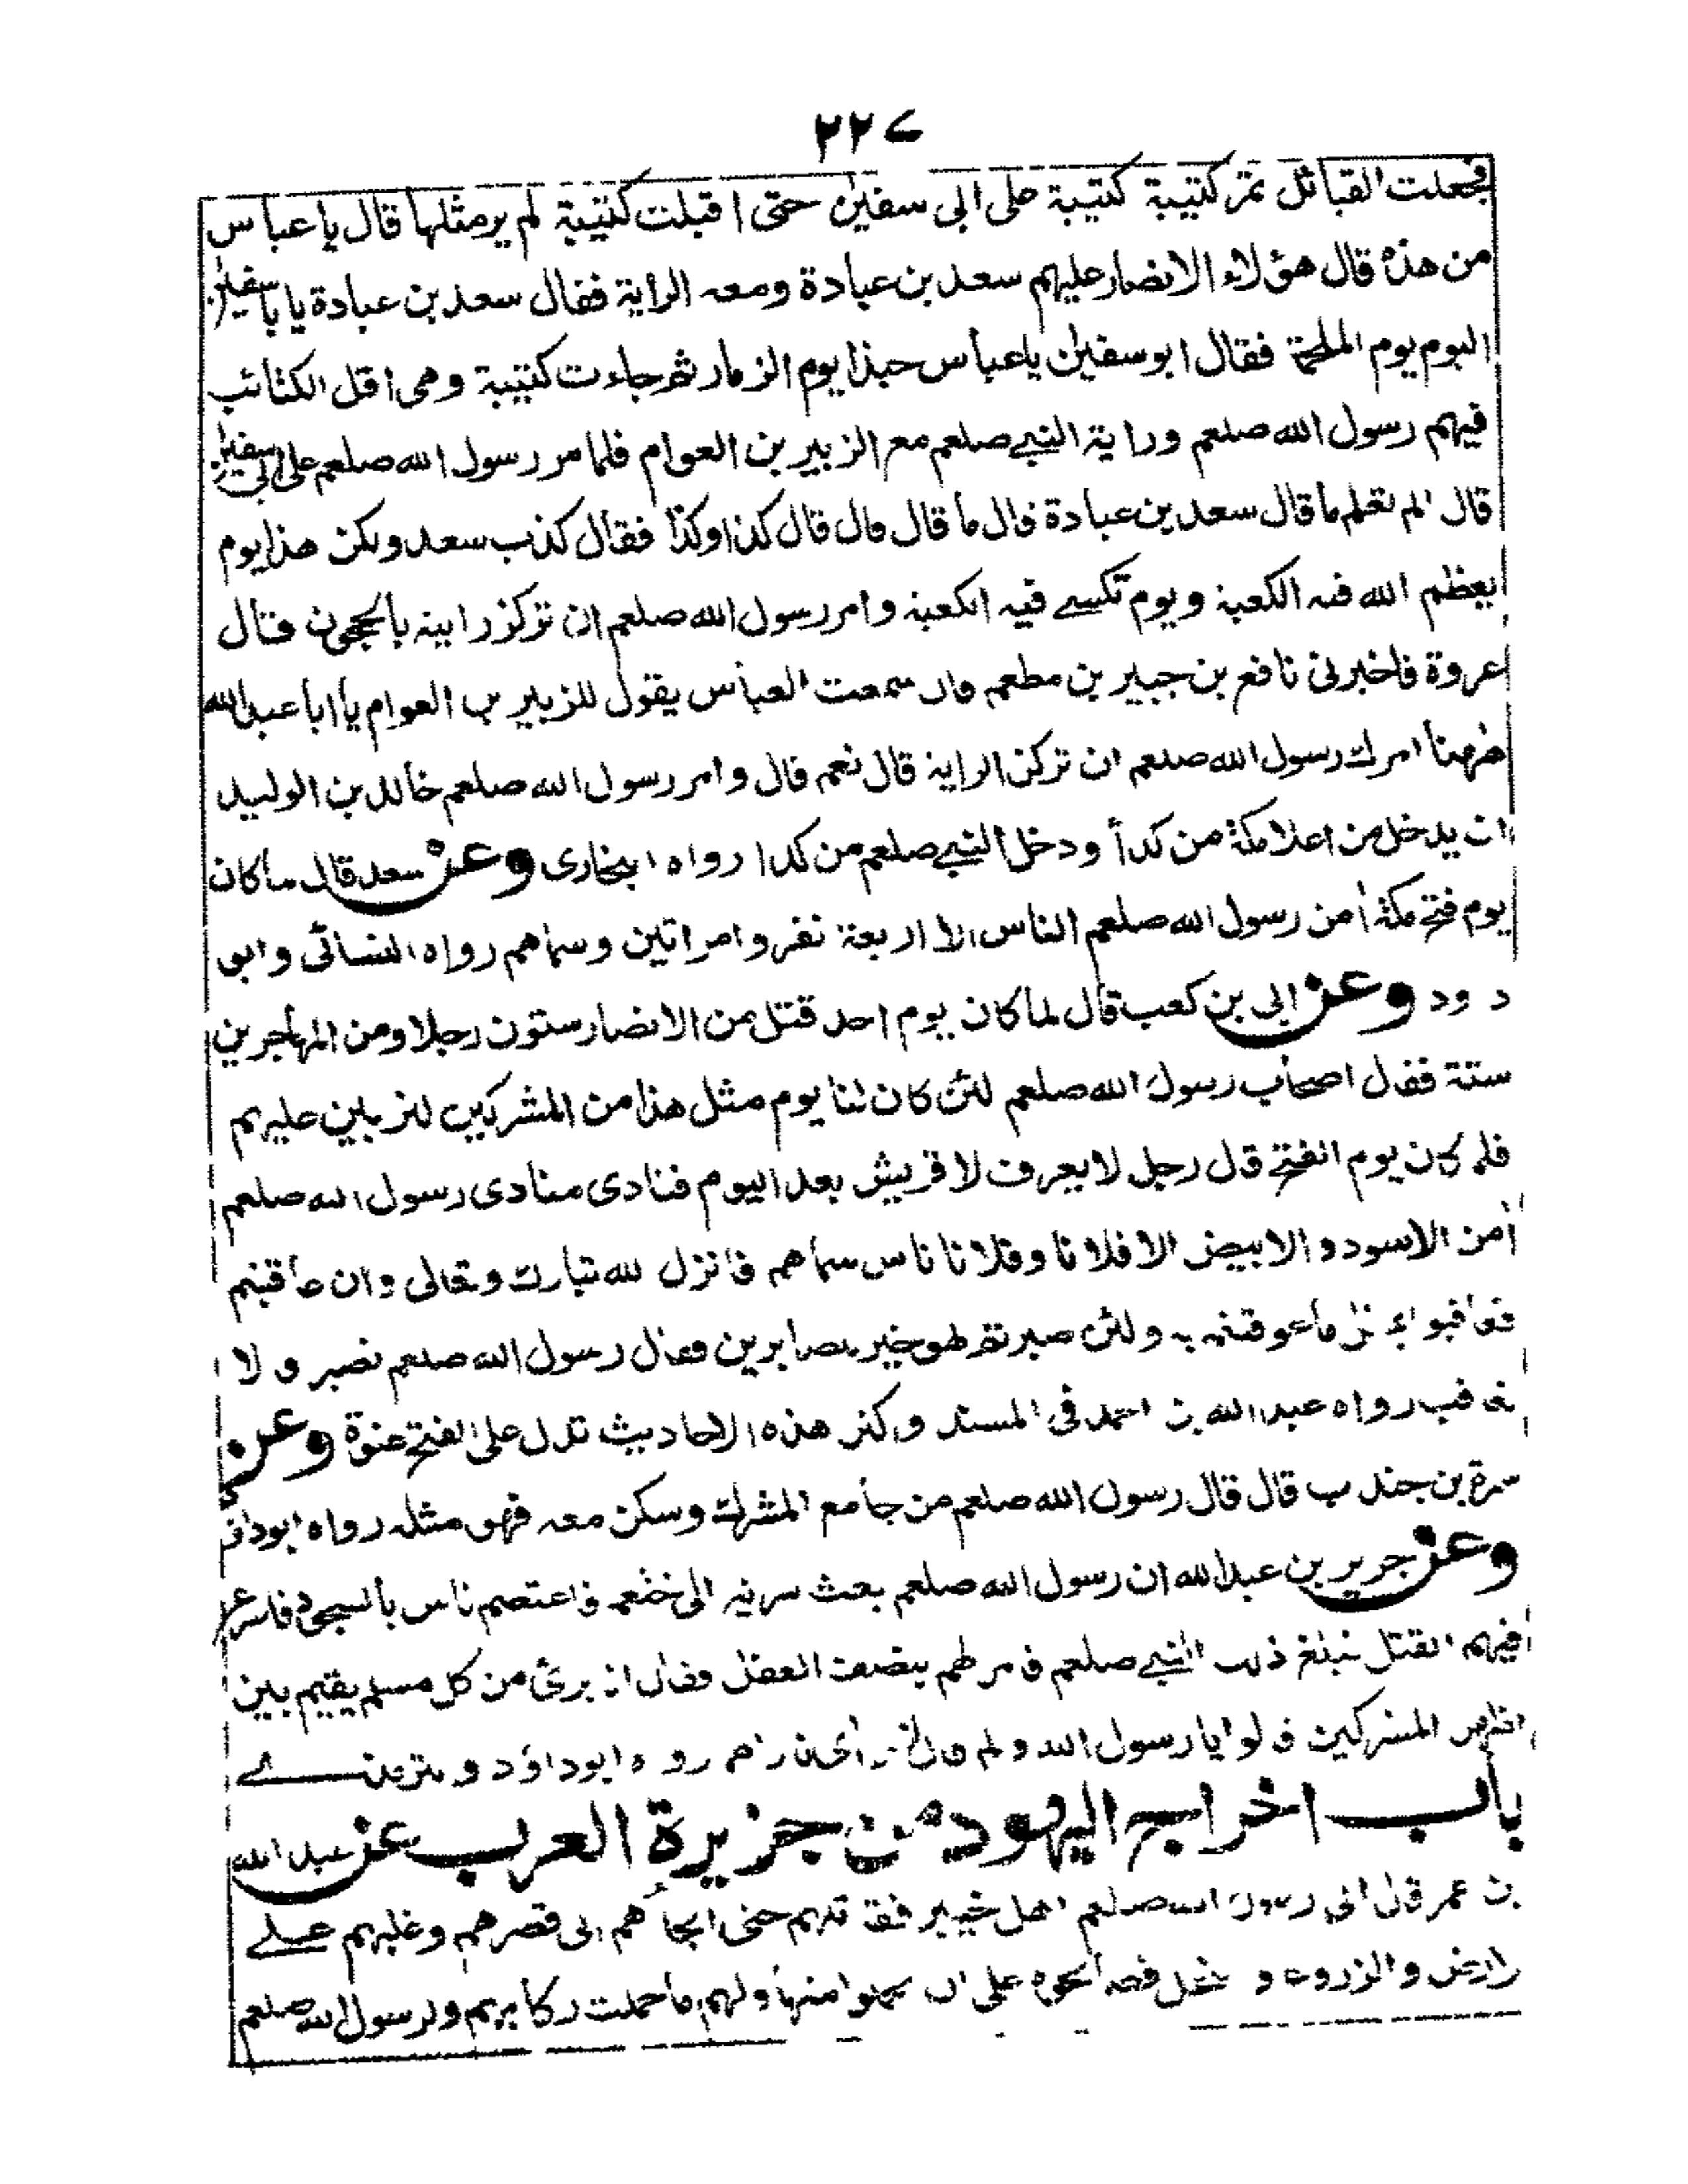 ٢٢٧
فجعلت القبائل تمر كتيبة كتيبة على ابى سفيٰن حتى اقبلت كتيبة لم يرمثلها قال يا عباس
من هذه قال هؤلاء الانصار عليهم سعد بن عبادة ومعه الراية فقال سعد بن عبادة يا ابا سفيٰن
اليوم يوم الملحمة فقال ابو سفيٰن يا عباس حبذا يوم الزمار ثم جاءت كتيبة وهى اقل الكتائب
فيهم رسول الله صلعم وراية النبے صلعم مع الزبير بن العوام فلما مر رسول الله صلعم على ابى سفيٰن
قال الم تعلم ما قال سعد بن عبادة قال ما قال قال قال كذا وكذا فقال كذب سعد ولكن هذا يوم
يعظم الله فيه الكعبة ويوم تكسے فيه الكعبة وامر رسول الله صلعم ان تركز رايته بالحجون فقال
عروة فاخبرنى نافع بن جبير بن مطعم قال سمعت العباس يقول للزبير بن العوام يا ابا عبد الله
ههنا امرك رسول الله صلعم ان تركز الراية قال نعم قال وامر رسول الله صلعم خالد بن الوليد
ان يدخل من اعلا مكة من كدأ ودخل النبے صلعم من كدا رواه البخارى وعن سعد قال ما كان
يوم فتح مكة أمن رسول الله صلعم الناس الا اربعة نفر وامراتين وسماهم رواه النسائى وابى
داود وعن ابى بن كعب قال لما كان يوم احد قتل من الانصار ستون رجلا ومن المهاجرين
ستة فقال اصحاب رسول الله صلعم لئن كان لنا يوم مثل هذا من المشركين لنربين عليهم
فلما كان يوم الفتح قال رجل لا يعرف لا قريش بعد اليوم فنادى منادى رسول الله صلعم
أمن الاسود والابيض الا فلانا وفلانا ناس سماهم فانزل الله تبارك وتعالى وان عاقبتم
فعاقبوا بمثل ما عوقبتم به ولئن صبرتم لهو خير للصابرين فقال رسول الله صلعم نصبر ولا
نعاقب رواه عبد الله بن احمد فى المسند واكثر هذه الاحاديث تدل على الفتح عنوة وعن
سمرة بن جندب قال قال رسول الله صلعم من جامع المشرك وسكن معه فهو مثله رواه ابوداؤد
وعن جرير بن عبد الله ان رسول الله صلعم بعث سرية الى خثعم فاعتصم ناس بالسجود فاسرع
فيهم القتل فبلغ ذلك النبے صلعم فامر لهم بنصف العقل وقال انا برئ من كل مسلم يقيم بين
اظهر المشركين قالوا يا رسول الله ولم قال لا ... رواه ابوداؤد والترمذے
باب اخراج اليهود من جزيرة العرب عن عبد الله
بن عمر قال اتى رسول الله صلعم اهل خيبر فقاتلهم حتى الجأهم الى قصرهم وغلبهم علے
الارض والزرع والنخل فصالحوه على ان يجلوا منها ولهم ما حملت ركابهم ولرسول الله صلعم